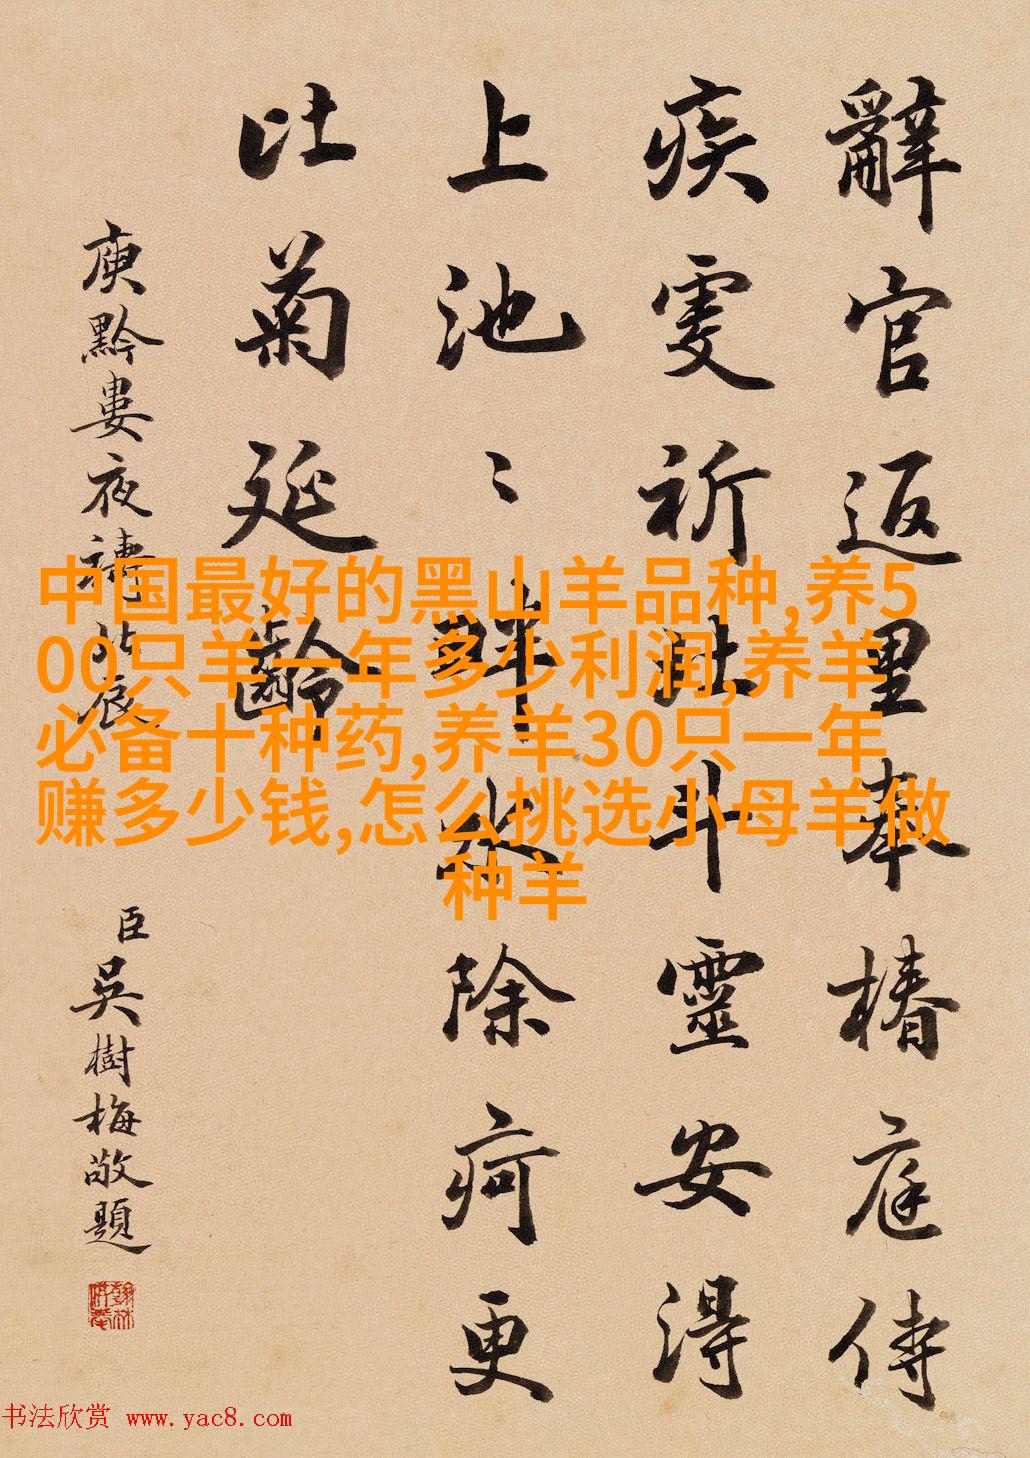 辭官返里奉椿庭侍
疾虔祈北斗靈安得
上池〻畔水除疴更
比菊延齡
庾黔婁夜禱北辰
臣吳樹梅敬題
中国最好的黑山羊品种,养5
00只羊一年多少利润,养羊
必备十种药,养羊30只一年
赚多少钱,怎么挑选小母羊做
种羊
书法欣赏 www.yac8.com